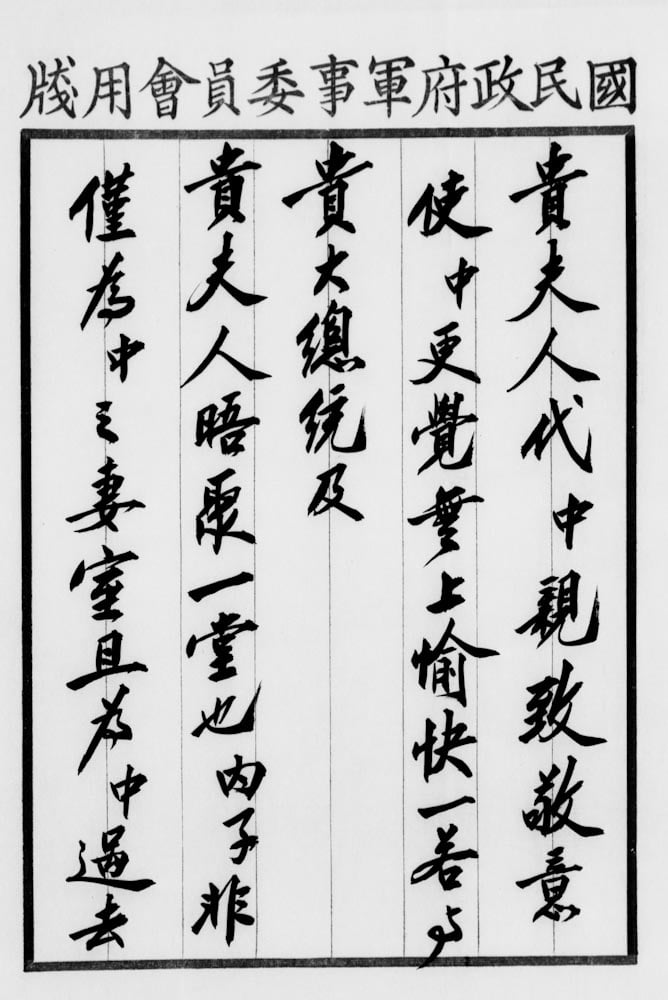 國民政府軍事委員會用牋
貴夫人代中親致敬意
使中更覺無上愉快一若與
貴大總統及
貴夫人晤聚一堂也內子非
僅為中之妻室且為中過去